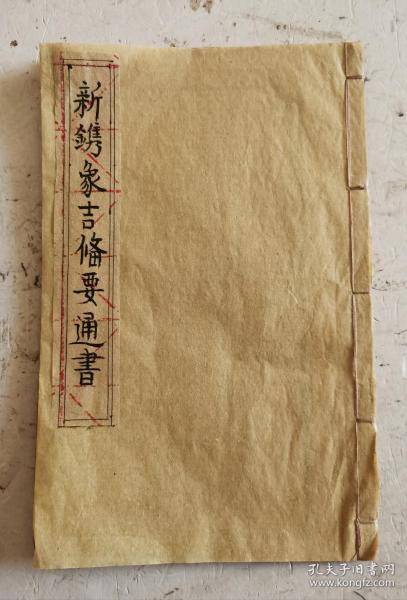 新鐫象吉俻要通書
孔夫子旧书网
www.kongfz.com